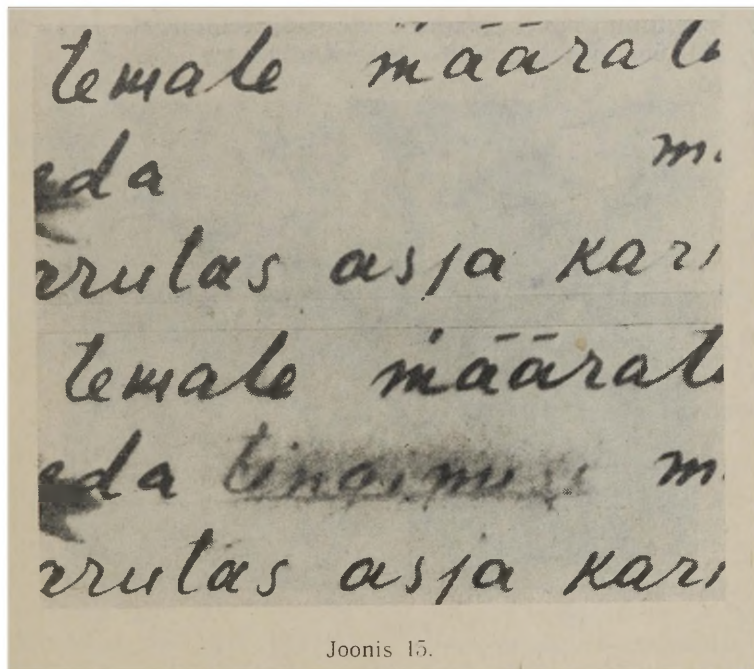 temale määrat
eda m
arutas asja kari
temale määrat
eda m
arutas asja kari
Joonis 15.